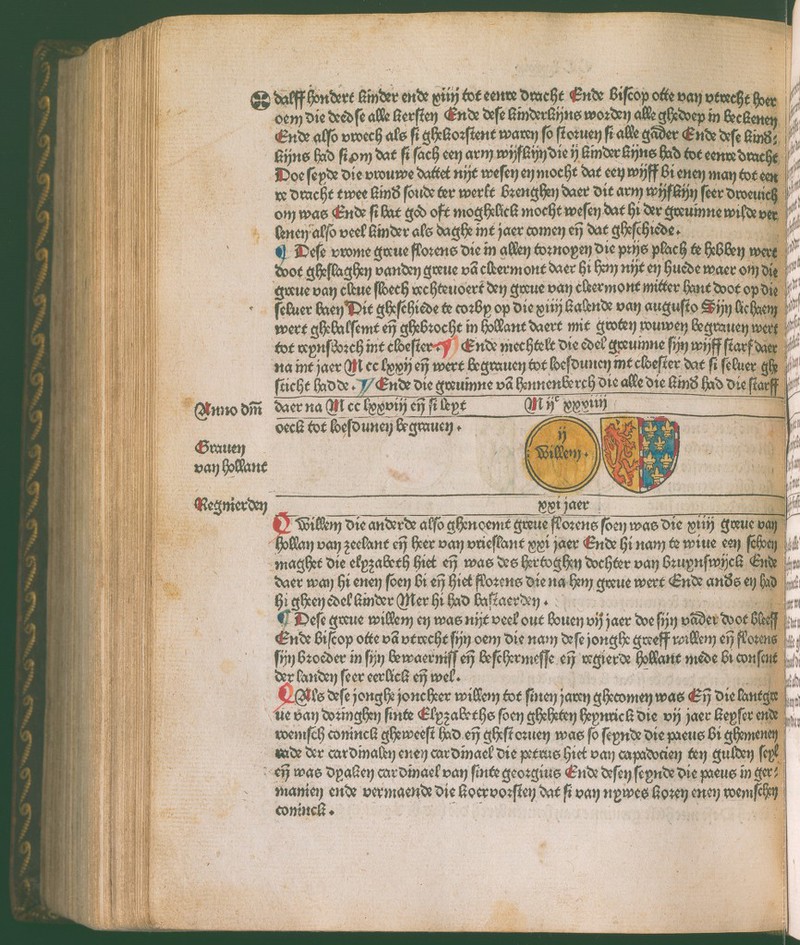 dalff hondert kinder ende xiiij tot eenre dracht Ende biscop otte van vtrecht hoer
oem die deedse alle kersten Ende dese kinderkijns worden alle ghedoep in beckenen
Ende also vroech als si ghekorstent waren so storuen si alle gader Ende dese kind
kijns had si om dat si sach een arm wijfkijn die ij kinderkijns had tot eenre dracht
Doe seyde die vrouwe dattet nijt wesen en mocht dat een wijff bi enen man tot een
re dracht twee kind soude ter werlt brenghen daer dit arm wijfkijn seer droeuich
om was Ende si bat god oft moghelick mocht wesen dat hi der greuinne wilde ver
lenen also veel kinder als daghe int jaer comen eñ dat gheschiede.
¶ Dese vrome greue florens die in allen tornoyen die prijs plach te hebben wert
doot gheslaghen vanden greue vā cleermont daer hi hem nijt en huede waer om die
greue van cleue sloech rechteuoert den greue van cleermont mitter hant doot op die
seluer baen Dit gheschiede te corby op die xiiij kalende van augusto Sijn lichaem
wert ghebalsemt eñ ghebrocht in hollant daert mit groten rouwen begrauen wert
tot reynsborch int cloester ¶ Ende mechtelt die edel greuinne sijn wijff starf daer
na int jaer M cc lxxij eñ wert begrauen tot loesdunen int cloester dat si seluer ghe
sticht hadde. ¶ Ende die greuinne vā hennenberch die alle die kind had die starff
Anno dm̄ daer na M cc lxxviij eñ si leyt M ijc xxxiiij
oeck tot loesdunen begrauen.
Grauen
van hollant
ij
Willem.
Regnierden xxi jaer
Willem die anderde also ghenoemt greue florens soen was die xiiij greue van
hollan van zeelant eñ heer van vrieslant xxi jaer Ende hi nam te wiue een schoen
maghet die elyzabeth hiet eñ was des hertoghen dochter van bruynswijck Ende
daer wan hi enen soen bi eñ hiet florens die na hem greue wert Ende anders en had
hi gheen edel kinder Mer hi had bastaerden.
¶ Dese greue willem en was nijt veel out bouen vij jaer doe sijn vader doot bleeff
Ende biscop otte vā vtrecht sijn oem die nam dese jonghe greeff willem eñ florens
sijn broeder in sijn bewaerniss eñ beschermesse eñ regierde hollant mede bi consent
der landen seer eerlick eñ wel.
Als dese jonghe joncheer willem tot sinen jaren ghecomen was Eñ die lantgre
ue van doringhen sinte Elyzabeths soen gheheten heynrick die vij jaer keyser ende
roemsch coninck gheweest had eñ ghestoruen was so seynde die paeus bi ghemenen
rade der cardinalen enen cardinael die petrus hiet van capadocien ten gulden seyl
eñ was dyaken cardinael van sinte georgius Ende desen seynde die paeus in ger
manien ende vermaende die koervorsten dat si van nywes koren enen roemschen
coninck.